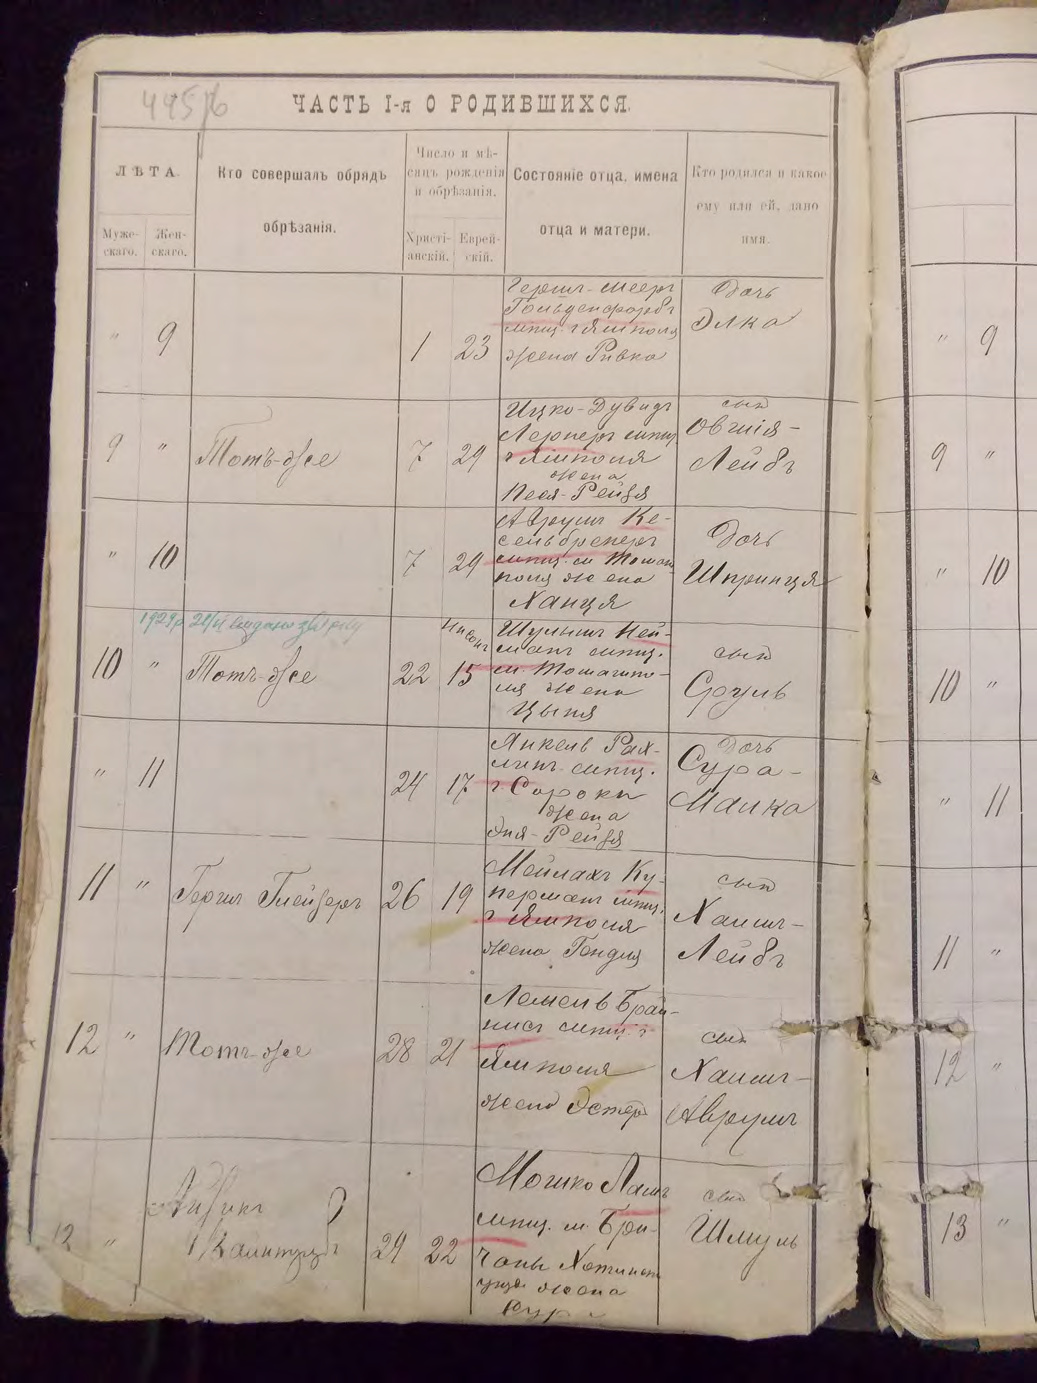 445 б
ЧАСТЬ I-я О РОДИВШИХСЯ.
ЛѢТА.
Муже-
скаго.
Жен-
скаго.
Кто совершалъ обрядъ
обрѣзанія.
Число и мѣ-
сяцъ рожденія
и обрѣзанія.
Христі-
анскій.
Еврей-
скій.
Состояніе отца, имена
отца и матери.
Кто родился и какое
ему или ей, дано
имя.
" 9
1 23
Гершъ-Мееръ
Гольденфарбъ
мпщ. г Ямполя
жена Ривка
Дочь
Элка
" 9
9 "
Тотъ-же
7 29
Ицко-Дувидъ
Лернеръ мпщ.
г Ямполя
жена
Песя-Рейзя
сынъ
Овшія-
Лейбъ
9 "
" 10
7 29
Аврумъ Ке-
сельбренеръ
мпщ. м. Томаш
поля жена
Ханця
Дочь
Шпринця
" 10
1929 р
10 "
Тотъ-же
22
Нисонъ
15
Шулимъ Ней-
манъ мпщ.
м. Томашпо-
ля жена
Цыпя
сынъ
Сруль
10 "
" 11
24 17
Янкель Рах-
мпщ.
г Сороки
жена
Эня-Рейзя
Дочь
Сура-
Малка
" 11
11 "
Гершъ Глейзеръ
26 19
Мейлахъ Ку-
перманъ мпщ.
г Ямполя
жена Гендля
сынъ
Хаимъ-
Лейбъ
11 "
12 "
Тотъ-же
28 21
Лемель Брай-
мпщ. г
Ямполя
жена Эстеръ
сынъ
Хаимъ-
Аврумъ
12 "
"
29 22
Мошко
мпщ. м. Бри-
чаны Хотинск
уѣзда жена
Сура
сынъ
Шмуль
13 "